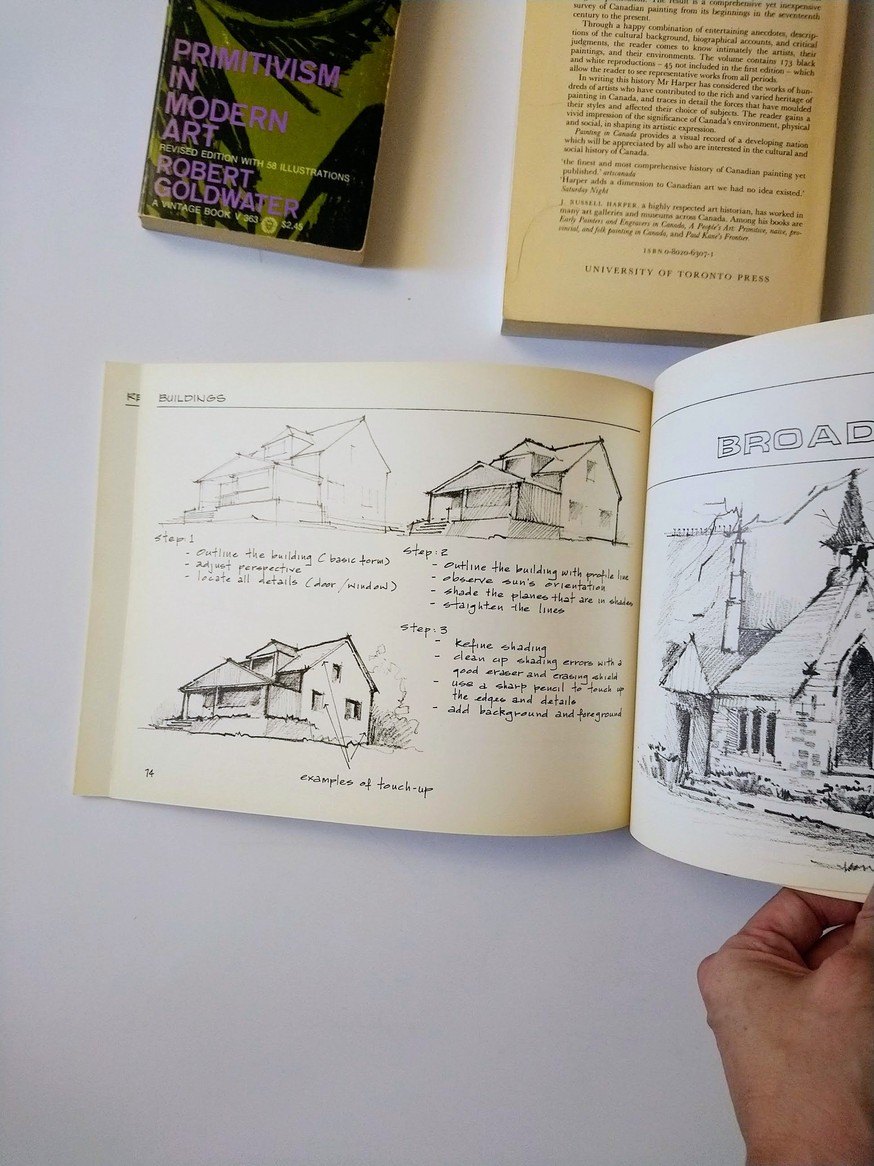 PRIMITIVISM
IN
MODERN
ART
REVISED EDITION WITH 58 ILLUSTRATIONS
ROBERT
GOLDWATER
A VINTAGE BOOK V 363 $2.45
survey of Canadian painting from its beginnings in the seventeenth
century to the present.
Through a happy combination of entertaining anecdotes, descrip-
tions of the cultural background, biographical accounts, and critical
judgments, the reader comes to know intimately the artists, their
paintings, and their environments. The volume contains 173 black
and white reproductions – 45 not included in the first edition – which
allow the reader to see representative works from all periods.
In writing this history Mr Harper has considered the works of hun-
dreds of artists who have contributed to the rich and varied heritage of
painting in Canada, and traces in detail the forces that have moulded
their styles and affected their choice of subjects. The reader gains a
vivid impression of the significance of Canada's environment, physical
and social, in shaping its artistic expression.
Painting in Canada provides a visual record of a developing nation
which will be appreciated by all who are interested in the cultural and
social history of Canada.
'the finest and most comprehensive history of Canadian painting yet
published.' artscanada
'Harper adds a dimension to Canadian art we had no idea existed.'
Saturday Night
J. RUSSELL HARPER, a highly respected art historian, has worked in
many art galleries and museums across Canada. Among his books are
Early Painters and Engravers in Canada, A People's Art: Primitive, naïve, pro-
vincial, and folk painting in Canada, and Paul Kane's Frontier.
ISBN 0-8020-6307-1
UNIVERSITY OF TORONTO PRESS
BUILDINGS
step: 1
- outline the building (basic form)
- adjust perspective
- locate all details (door/window)
step: 2
- outline the building with profile line
- observe sun's orientation
- shade the planes that are in shades
- staighten the lines
step: 3
- Refine shading
- clean up shading errors with a
good eraser and erasing shield
- use a sharp pencil to touch up
the edges and details
- add background and foreground
examples of touch-up
74
BROAD